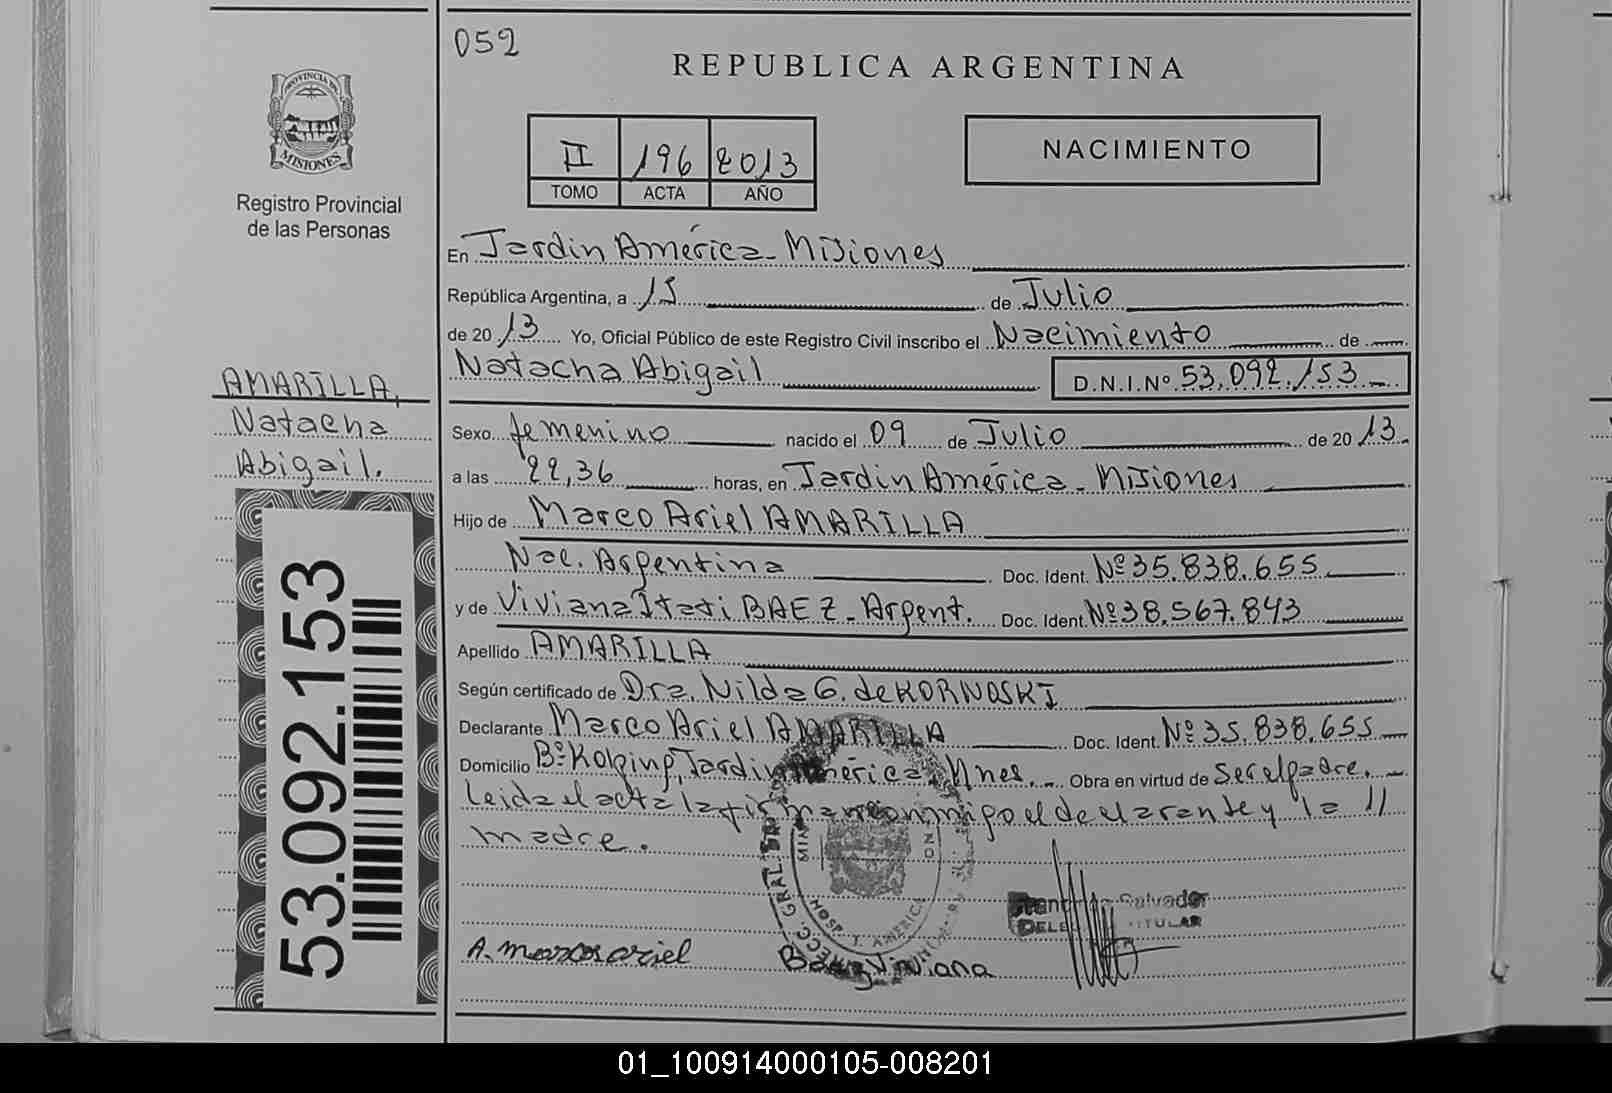 052
REPUBLICA ARGENTINA
PROVINCIA DE
MISIONES
Registro Provincial
de las Personas
II 196 2013
TOMO ACTA AÑO
NACIMIENTO
En Jardin América - Misiones
República Argentina, a 15 de Julio
de 2013 Yo, Oficial Público de este Registro Civil inscribo el Nacimiento de
Natacha Abigail D.N.I.Nº 53.092.153
AMARILLA,
Natacha
Abigail.
Sexo femenino nacido el 09 de Julio de 2013
a las 22,36 horas, en Jardin América - Misiones
Hijo de Marco Ariel AMARILLA
Nac. Argentina Doc. Ident. Nº 35.838.655
y de Viviana Itati BAEZ - Argent. Doc. Ident. Nº 38.567.843
Apellido AMARILLA
Según certificado de Dra. Nilda G. de KORNOSKI
Declarante Marco Ariel AMARILLA Doc. Ident. Nº 35.838.655
Domicilio Bº Kolping, Jardin América, Mnes. Obra en virtud de Ser el padre.
Leida el acta la firman conmigo el declarante y la
madre.
53.092.153
HOSP. J. AMERICA
Salvador
TITULAR
A. marcos ariel
Baez Viviana
01_100914000105-008201